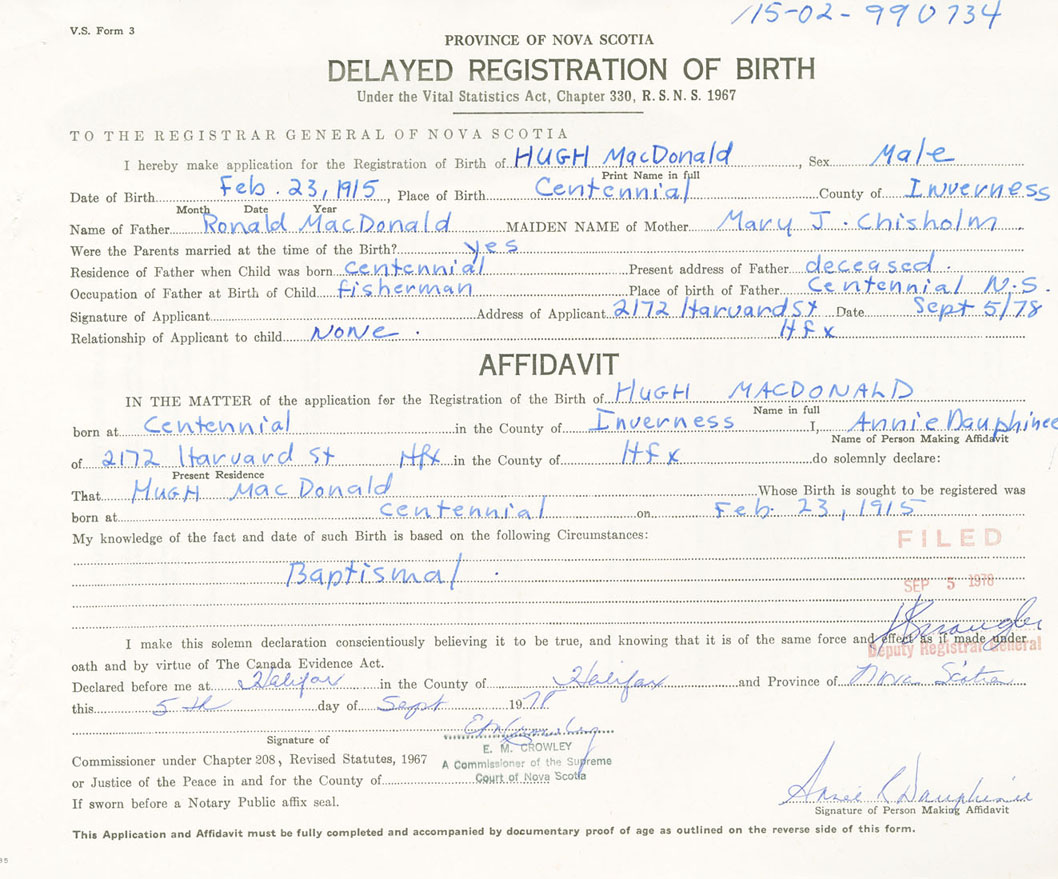 115-02-990734
V.S. Form 3
PROVINCE OF NOVA SCOTIA
DELAYED REGISTRATION OF BIRTH
Under the Vital Statistics Act, Chapter 330, R.S.N.S. 1967
TO THE REGISTRAR GENERAL OF NOVA SCOTIA
I hereby make application for the Registration of Birth of HUGH MacDonald, Sex Male
Print Name in full
Date of Birth Feb. 23, 1915, Place of Birth Centennial County of Inverness
Month Date Year
Name of Father Ronald MacDonald MAIDEN NAME of Mother Mary J. Chisholm
Were the Parents married at the time of the Birth? yes
Residence of Father when Child was born centennial Present address of Father deceased.
Occupation of Father at Birth of Child fisherman Place of birth of Father Centennial N.S.
Signature of Applicant Address of Applicant 2172 Harvard St Date Sept 5/78
Relationship of Applicant to child NONE. Hfx
AFFIDAVIT
IN THE MATTER of the application for the Registration of the Birth of HUGH MACDONALD
Name in full
born at Centennial in the County of Inverness I, Annie Dauphinee
Name of Person Making Affidavit
of 2172 Harvard St Hfx in the County of Hfx do solemnly declare:
Present Residence
That HUGH MacDonald Whose Birth is sought to be registered was
born at centennial on Feb. 23, 1915
My knowledge of the fact and date of such Birth is based on the following Circumstances:
FILED
Baptismal.
SEP 5 1978
I make this solemn declaration conscientiously believing it to be true, and knowing that it is of the same force and effect as if made under
Deputy Registrar General
oath and by virtue of The Canada Evidence Act.
Declared before me at Halifax in the County of Halifax and Province of Nova Scotia
this 5th day of Sept 1978
Signature of
E. M. CROWLEY
Commissioner under Chapter 208, Revised Statutes, 1967
A Commissioner of the Supreme
or Justice of the Peace in and for the County of
Court of Nova Scotia
If sworn before a Notary Public affix seal.
Annie R Dauphinee
Signature of Person Making Affidavit
This Application and Affidavit must be fully completed and accompanied by documentary proof of age as outlined on the reverse side of this form.